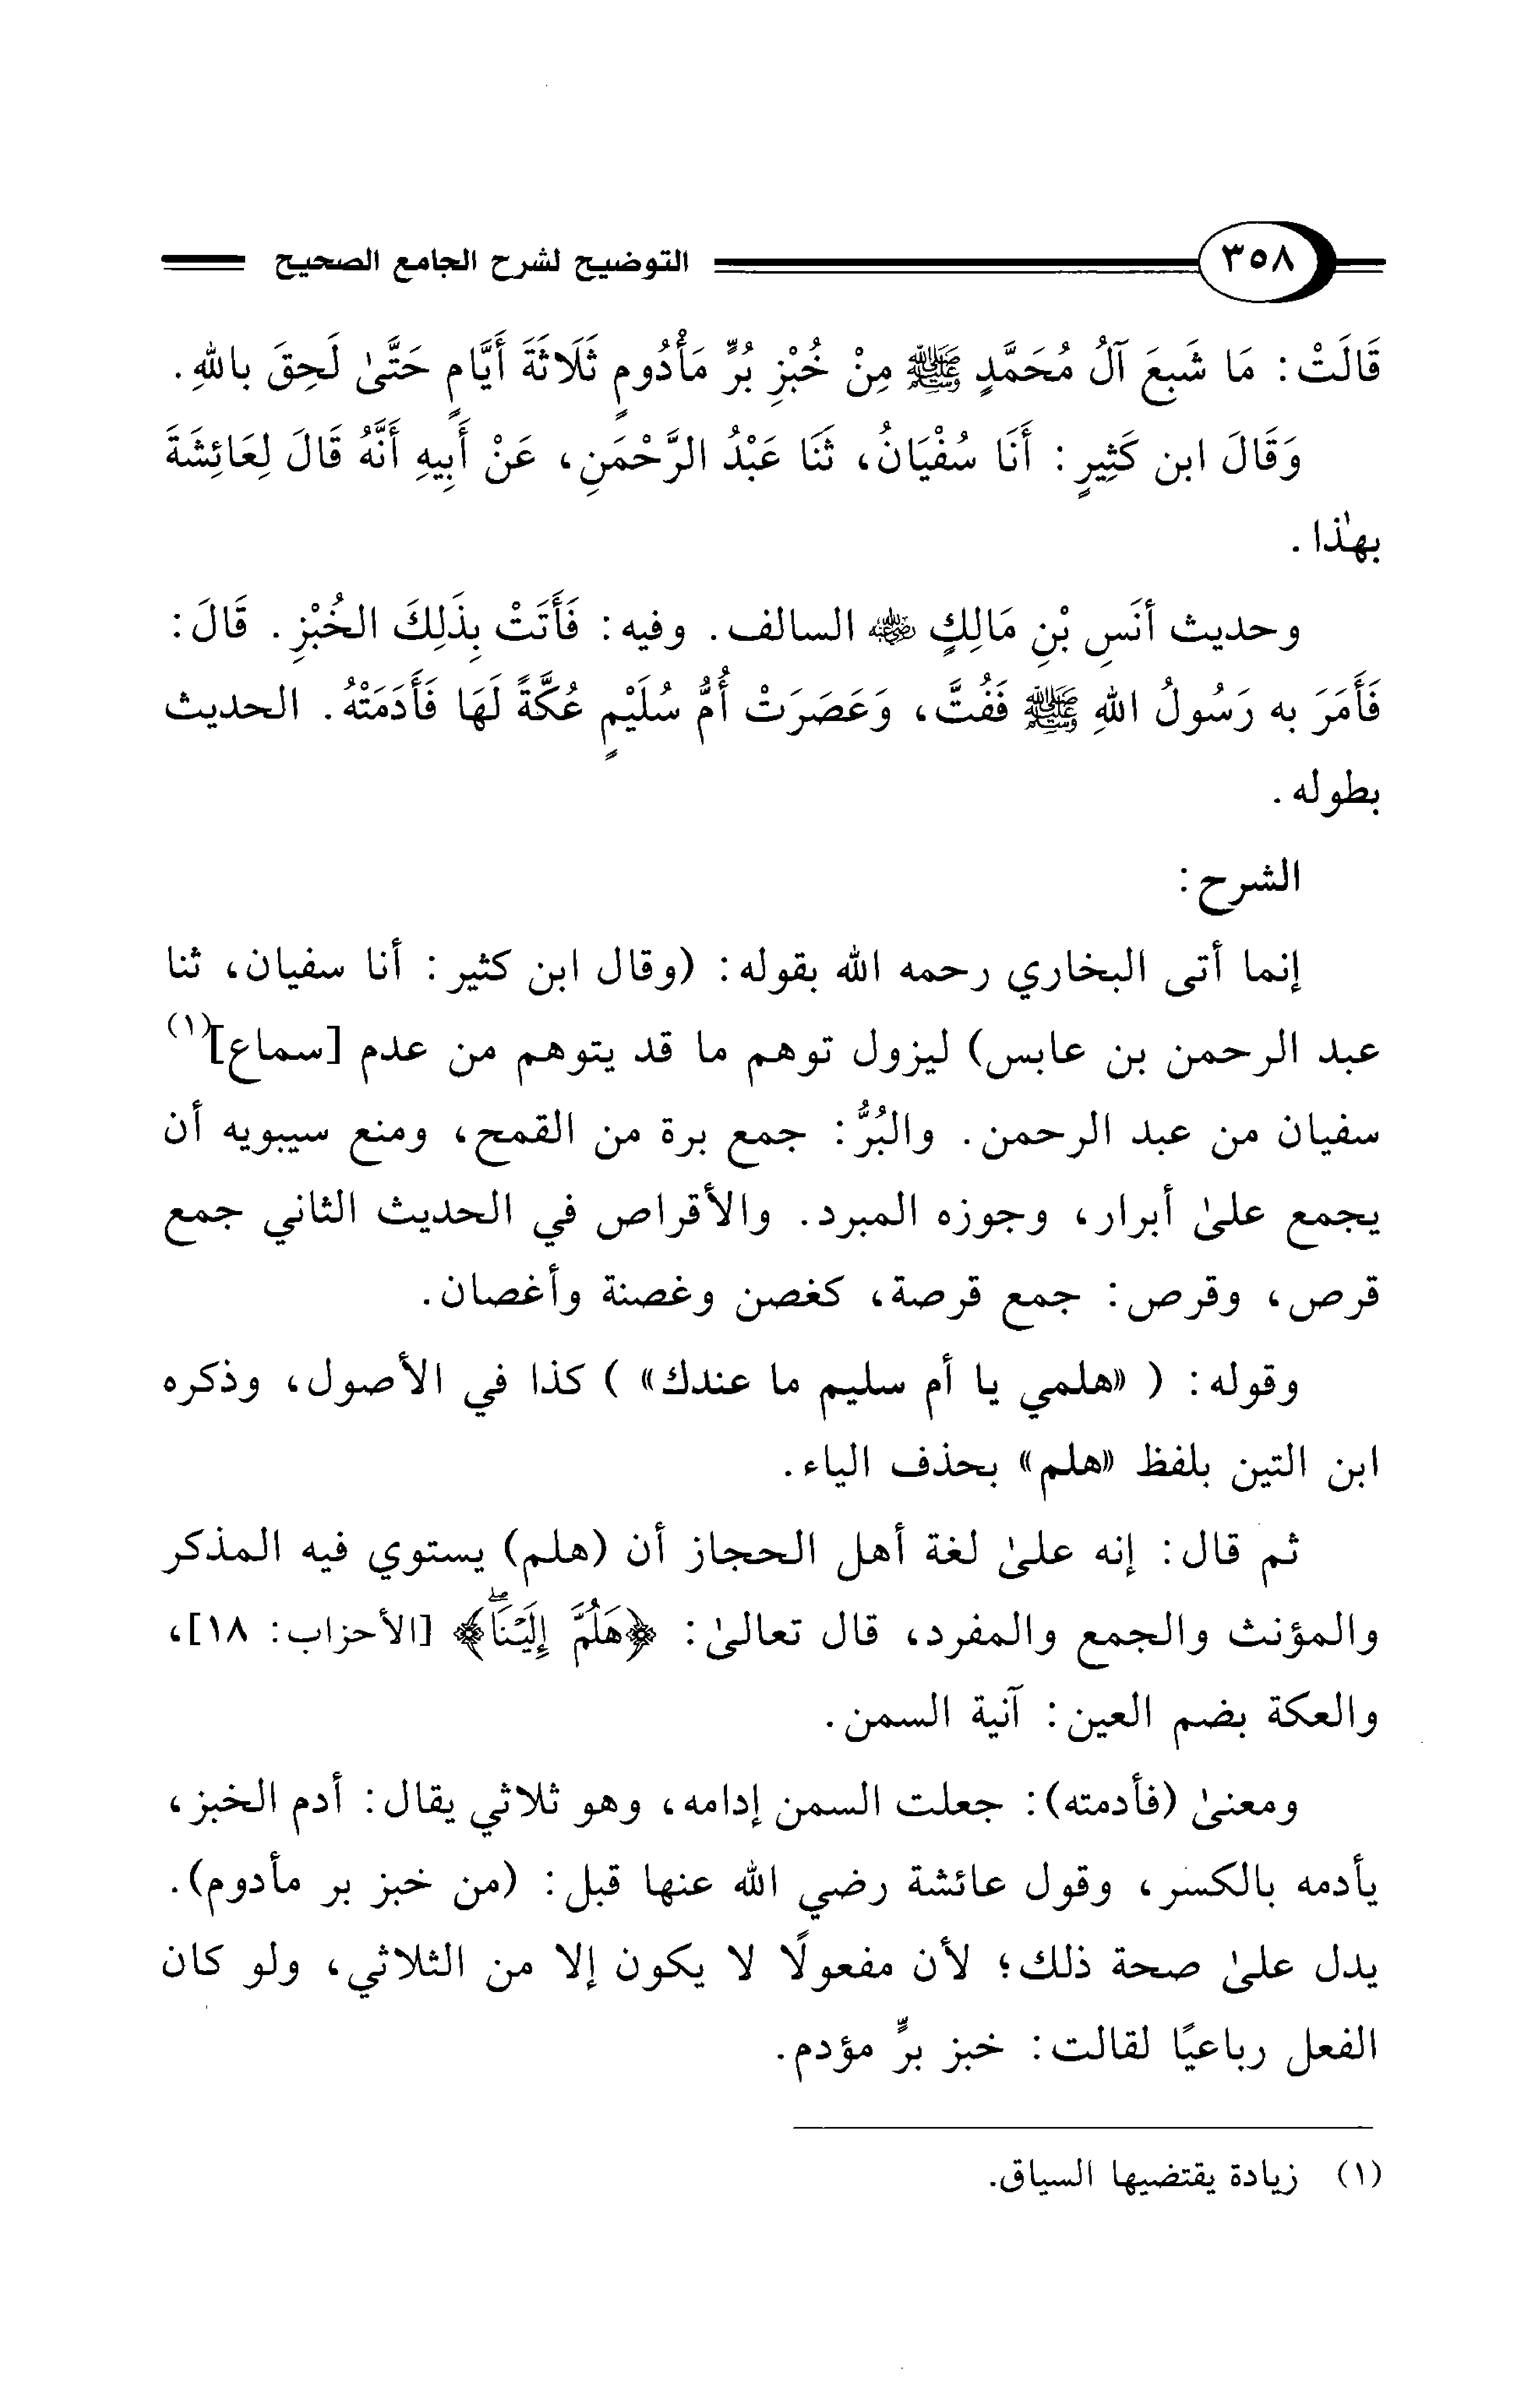 ٣٥٨ التوضيح لشرح الجامع الصحيح
قَالَتْ: مَا شَبِعَ آلُ مُحَمَّدٍ ﷺ مِنْ خُبْزِ بُرٍّ مَأْدُومٍ ثَلَاثَةَ أَيَّامٍ حَتَّىٰ لَحِقَ باللهِ.
وَقَالَ ابن كَثِيرٍ: أَنَا سُفْيَانُ، ثَنَا عَبْدُ الرَّحْمَنِ، عَنْ أَبِيهِ أَنَّهُ قَالَ لِعَائِشَةَ
بهٰذا.
وحديث أَنَسِ بْنِ مَالِكٍ رضي الله عنه السالف. وفيه: فَأَتَتْ بِذَلِكَ الخُبْزِ. قَالَ:
فَأَمَرَ به رَسُولُ اللهِ ﷺ فَفُتَّ، وَعَصَرَتْ أُمُّ سُلَيْمٍ عُكَّةً لَهَا فَأَدَمَتْهُ. الحديث
بطوله.
الشرح:
إنما أتى البخاري رحمه الله بقوله: (وقال ابن كثير: أنا سفيان، ثنا
عبد الرحمن بن عابس) ليزول توهم ما قد يتوهم من عدم [سماع](١)
سفيان من عبد الرحمن. والبُرُّ: جمع برة من القمح، ومنع سيبويه أن
يجمع علىٰ أبرار، وجوزه المبرد. والأقراص في الحديث الثاني جمع
قرص، وقرص: جمع قرصة، كغصن وغصنة وأغصان.
وقوله: ( «هلمي يا أم سليم ما عندك» ) كذا في الأصول، وذكره
ابن التين بلفظ «هلم» بحذف الياء.
ثم قال: إنه علىٰ لغة أهل الحجاز أن (هلم) يستوي فيه المذكر
والمؤنث والجمع والمفرد، قال تعالىٰ: ﴿هَلُمَّ إِلَيْنَاۖ﴾ [الأحزاب: ١٨]،
والعكة بضم العين: آنية السمن.
ومعنىٰ (فأدمته): جعلت السمن إدامه، وهو ثلاثي يقال: أدم الخبز،
يأدمه بالكسر، وقول عائشة رضي الله عنها قبل: (من خبز بر مأدوم).
يدل علىٰ صحة ذلك؛ لأن مفعولًا لا يكون إلا من الثلاثي، ولو كان
الفعل رباعيًا لقالت: خبز برٍّ مؤدم.
(١) زيادة يقتضيها السياق.